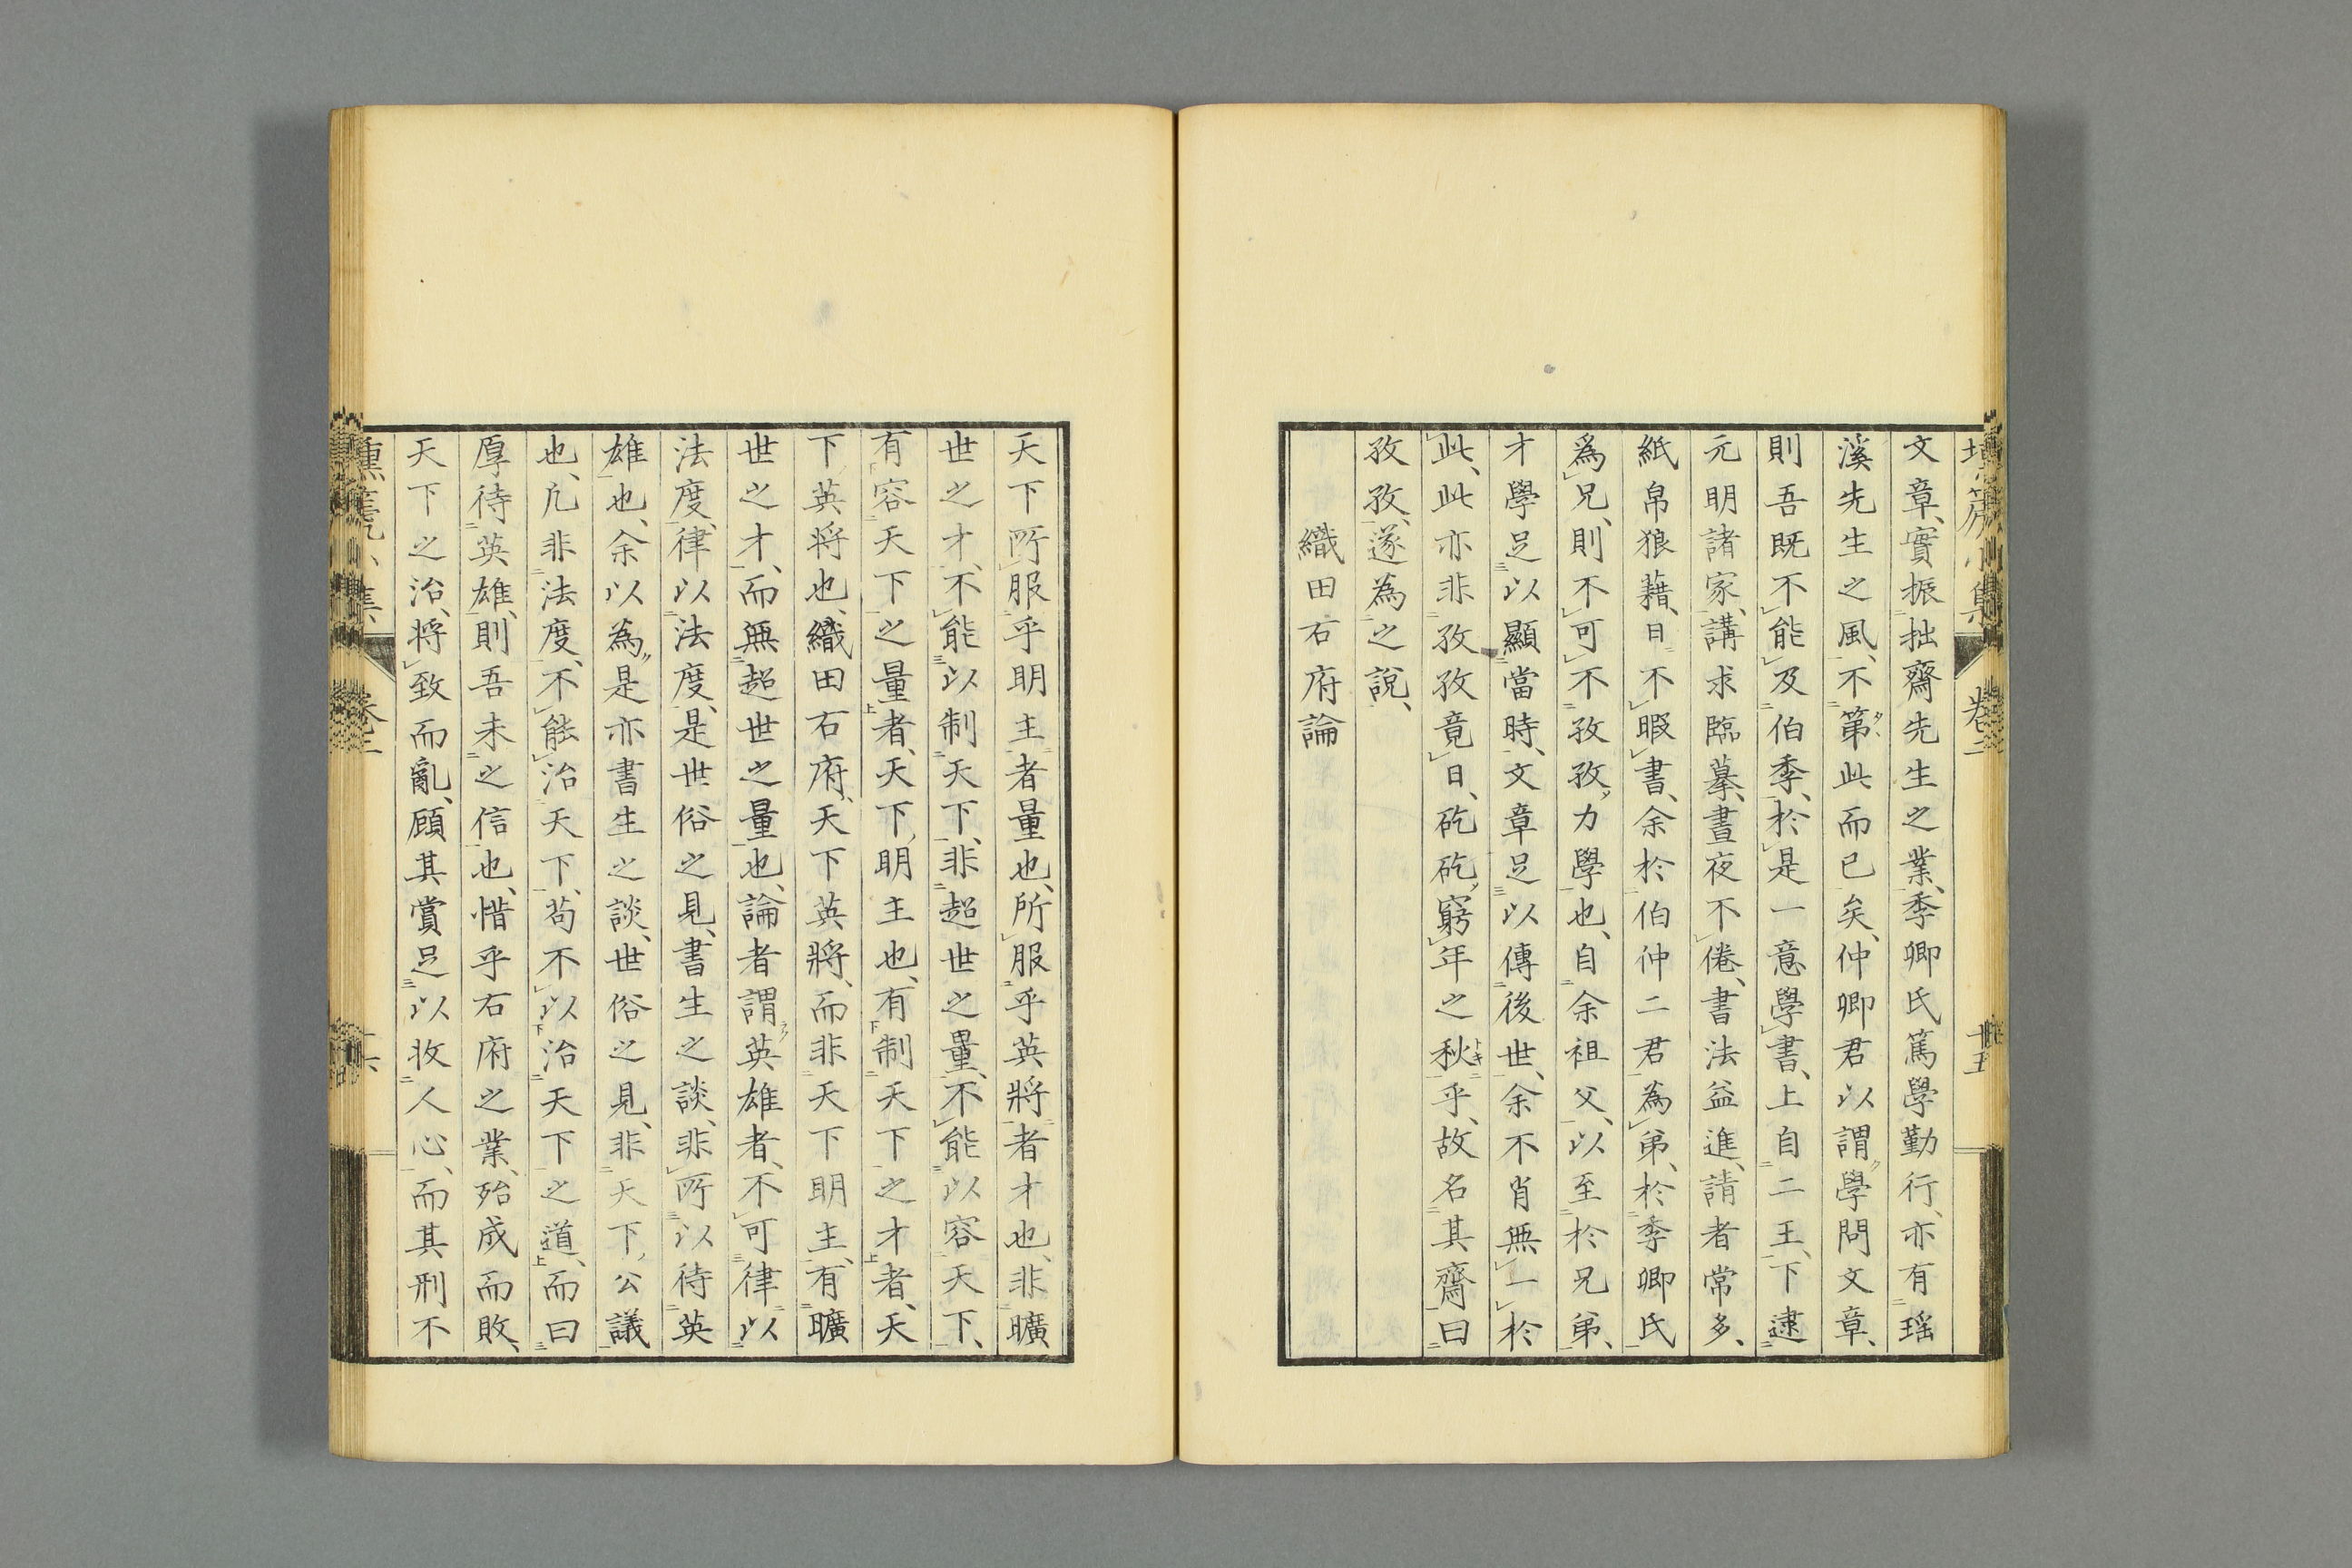 文章、實振拙齋先生之業、季卿氏篤學勤行、亦有瑶
溪先生之風、不第此而已矣、仲卿君以謂學問文章、
則吾既不能及伯季、於是一意學書、上自二王、下逮
元明諸家、講求臨摹、晝夜不倦、書法益進、請者常多、
紙帛狼藉、日不暇書、余於伯仲二君為弟、於季卿氏
爲兄、則不可不孜孜力學也、自余祖父、以至於兄弟、
才學足以顯當時、文章足以傳後世、余不肖無一於
此、此亦非孜孜竟日、矻矻窮年之秋乎、故名其齋曰
孜孜、遂為之說、
織田右府論
天下所服乎明主者量也、所服乎英將者才也、非曠
世之才、不能以制天下、非超世之量、不能以容天下、
有容天下之量者、天下明主也、有制天下之才者、天
下英将也、織田右府、天下英將、而非天下明主、有曠
世之才、而無超世之量也、論者謂英雄者、不可律以
法度、律以法度、是世俗之見、書生之談、非所以待英
雄也、余以為是亦書生之談、世俗之見、非天下公議
也、凡非法度、不能治天下、苟不以治天下之道、而曰
厚待英雄、則吾未之信也、惜乎右府之業、殆成而敗、
天下之治、将致而亂、顧其賞足以收人心、而其刑不